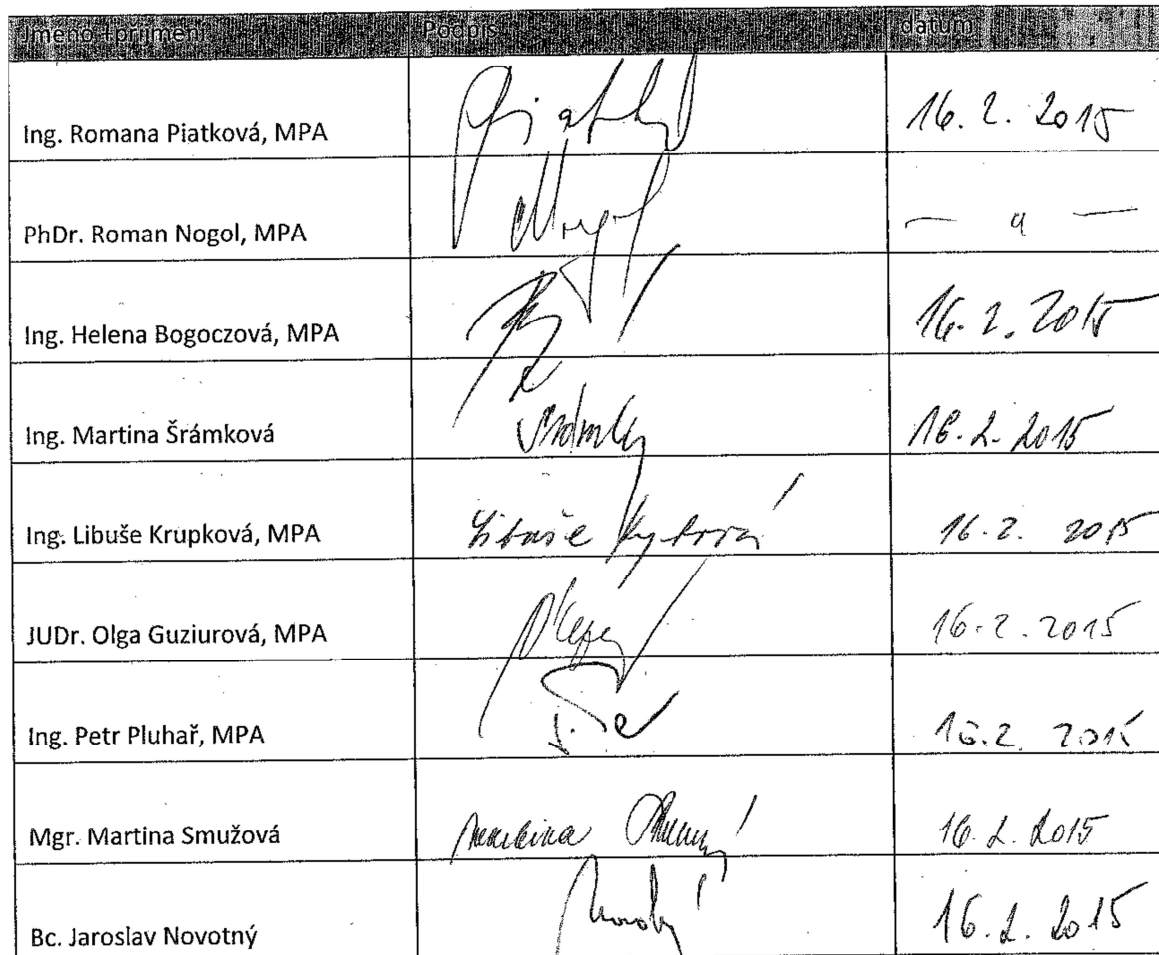 Jméno +příjmení Podpis datum
Ing. Romana Piatková, MPA 16. 2. 2015
PhDr. Roman Nogol, MPA Nogol — " —
Ing. Helena Bogoczová, MPA 16. 2. 2015
Ing. Martina Šrámková 16. 2. 2015
Ing. Libuše Krupková, MPA Libuše 16. 2. 2015
JUDr. Olga Guziurová, MPA 16. 2. 2015
Ing. Petr Pluhař, MPA 16. 2. 2015
Mgr. Martina Smužová Martina 16. 2. 2015
Bc. Jaroslav Novotný 16. 2. 2015